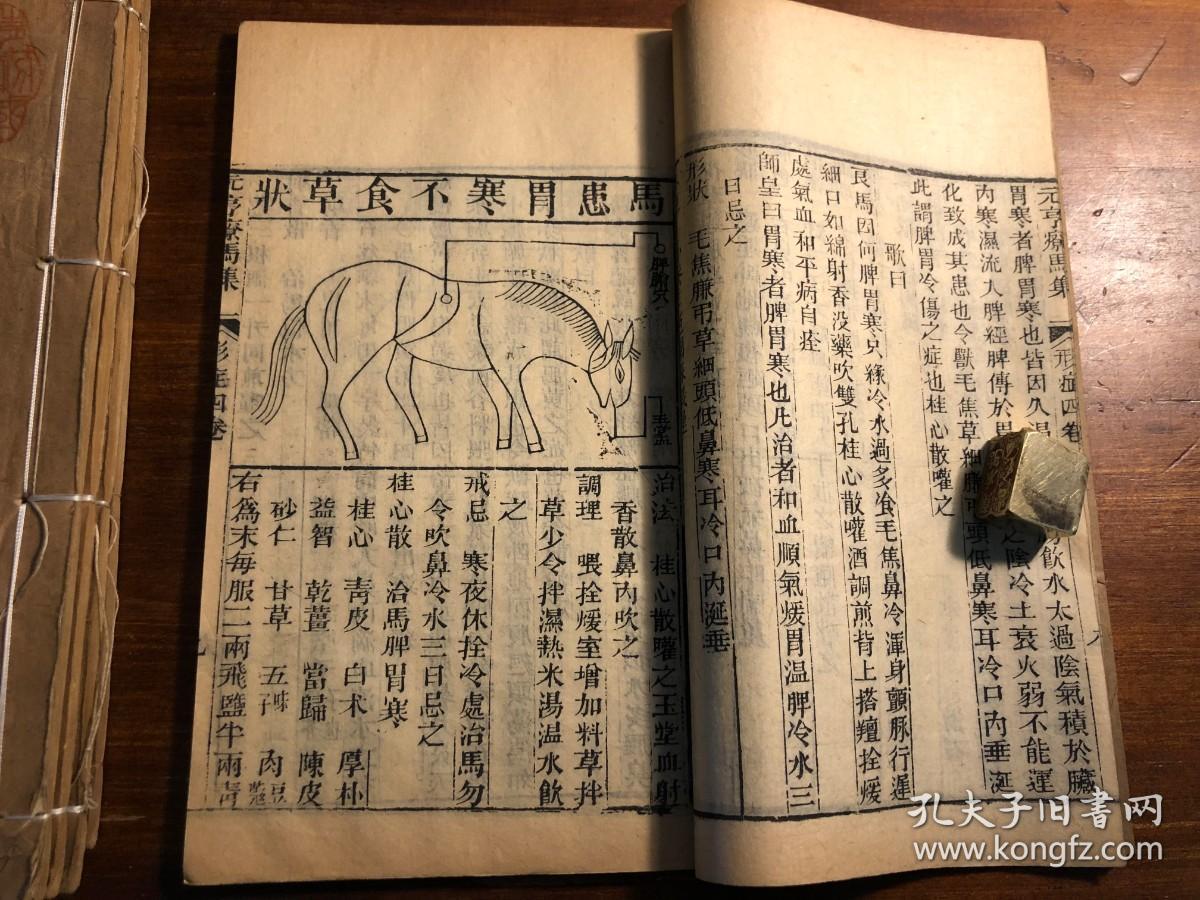 元亨療馬集
形症四卷
胃寒者脾胃寒也皆因久渴
飲水太過陰氣積於臟
內寒濕流入脾經脾傳於胃
之陰冷土衰火弱不能運
化致成其患也令獸毛焦草細
頭低鼻寒耳冷口內垂涎
此謂脾胃冷傷之症也桂心散嚾之
歌曰
良馬因何脾胃寒只緣冷水過多飡毛焦鼻冷渾身顫脉行遲
細口如綿射香沒藥吹雙孔桂心散嚾酒調煎背上搭氊拴煖
處氣血和平病自痊
師皇曰胃寒者脾胃寒也凡治者和血順氣煖胃温脾冷水三
日忌之
形狀 毛焦膁弔草細頭低鼻寒耳冷口內涎垂
馬患胃寒不食草狀
脾腧穴
玉堂血
治法 桂心散嚾之玉堂血射
香散鼻內吹之
調理 喂拴煖室增加料草拌
草少令拌濕熱米湯温水飲
之
戒忌 寒夜休拴冷處治馬勿
令吹鼻冷水三日忌之
桂心散 治馬脾胃寒
桂心 青皮 白术 厚朴
益智 乾薑 當歸 陳皮
砂仁 甘草 五味子 肉豆蔻
右爲末每服二兩飛鹽半兩青
元亨療馬集
形症四卷
九
孔夫子旧书网
www.kongfz.com